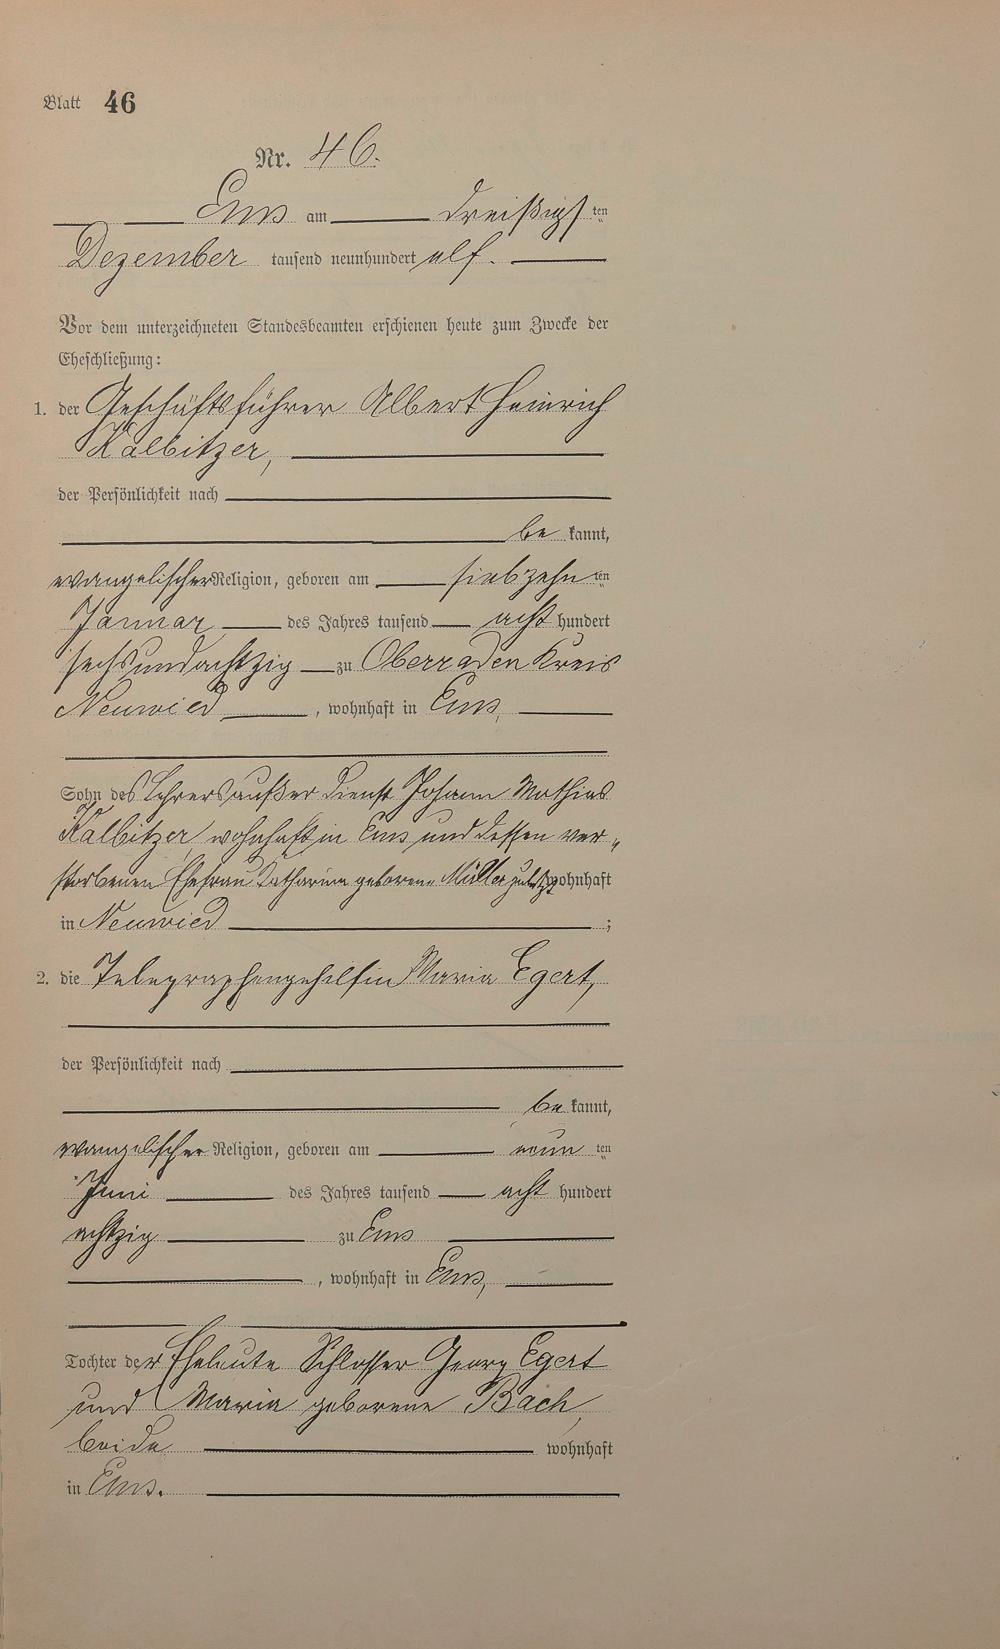 Blatt 46
Nr. 46.
Ems am dreißigsten
Dezember tausend neunhundert elf.
Vor dem unterzeichneten Standesbeamten erschienen heute zum Zwecke der
Eheschließung:
1. der Geschäftsführer Albert Heinrich
Kalbitzer,
der Persönlichkeit nach
be kannt,
evangelischer Religion, geboren am siebzehnten
Januar des Jahres tausend acht hundert
sechsundachtzig zu Oberraden Kreis
Neuwied, wohnhaft in Ems,
Sohn des Lehrers außer Dienst Johann Mathias
Kalbitzer wohnhaft in Ems und dessen ver„
storbenen Ehefrau Katharina geborene Müller zuletzt wohnhaft
in Neuwied ;
2. die Telegraphengehilfin Maria Egert,
der Persönlichkeit nach
be kannt,
evangelischer Religion, geboren am neun ten
Juni des Jahres tausend acht hundert
achtzig zu Ems
, wohnhaft in Ems,
Tochter der Eheleute Schlosser Georg Egert
und Maria geborene Bach,
beide wohnhaft
in Ems.